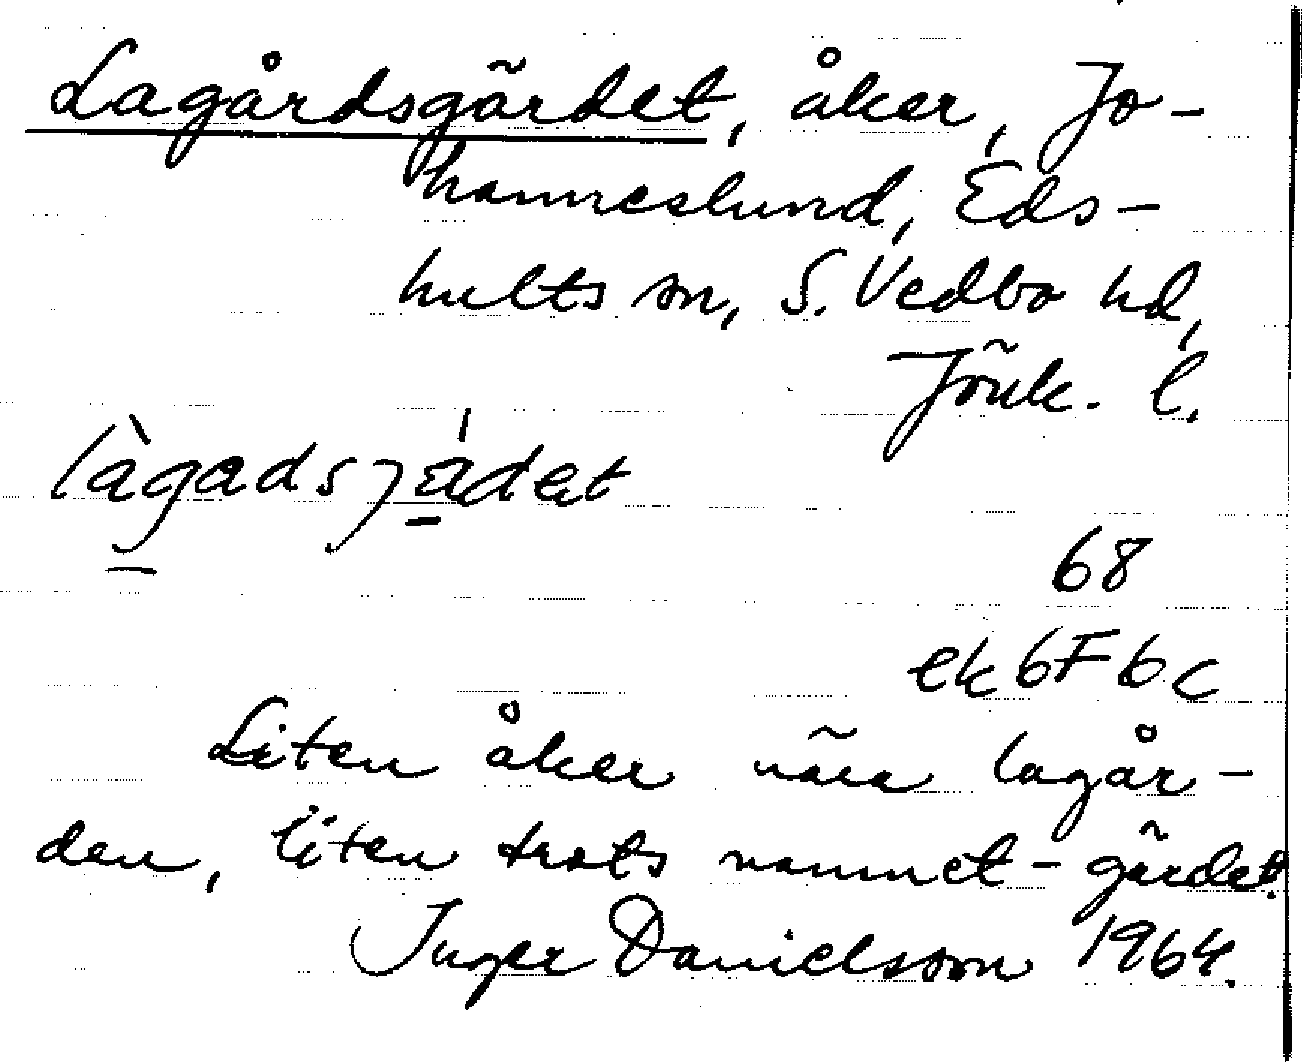 Lagårdsgärdet, åker, Jo-
hanneslund, Eds-
hults sn, S. Vedbo hd,
Jönk. l.
làgadsjádet
68
ek 6F 6c
Liten åker nära lagår-
den, liten trots namnet -gärdet.
Inger Danielsson 1964.